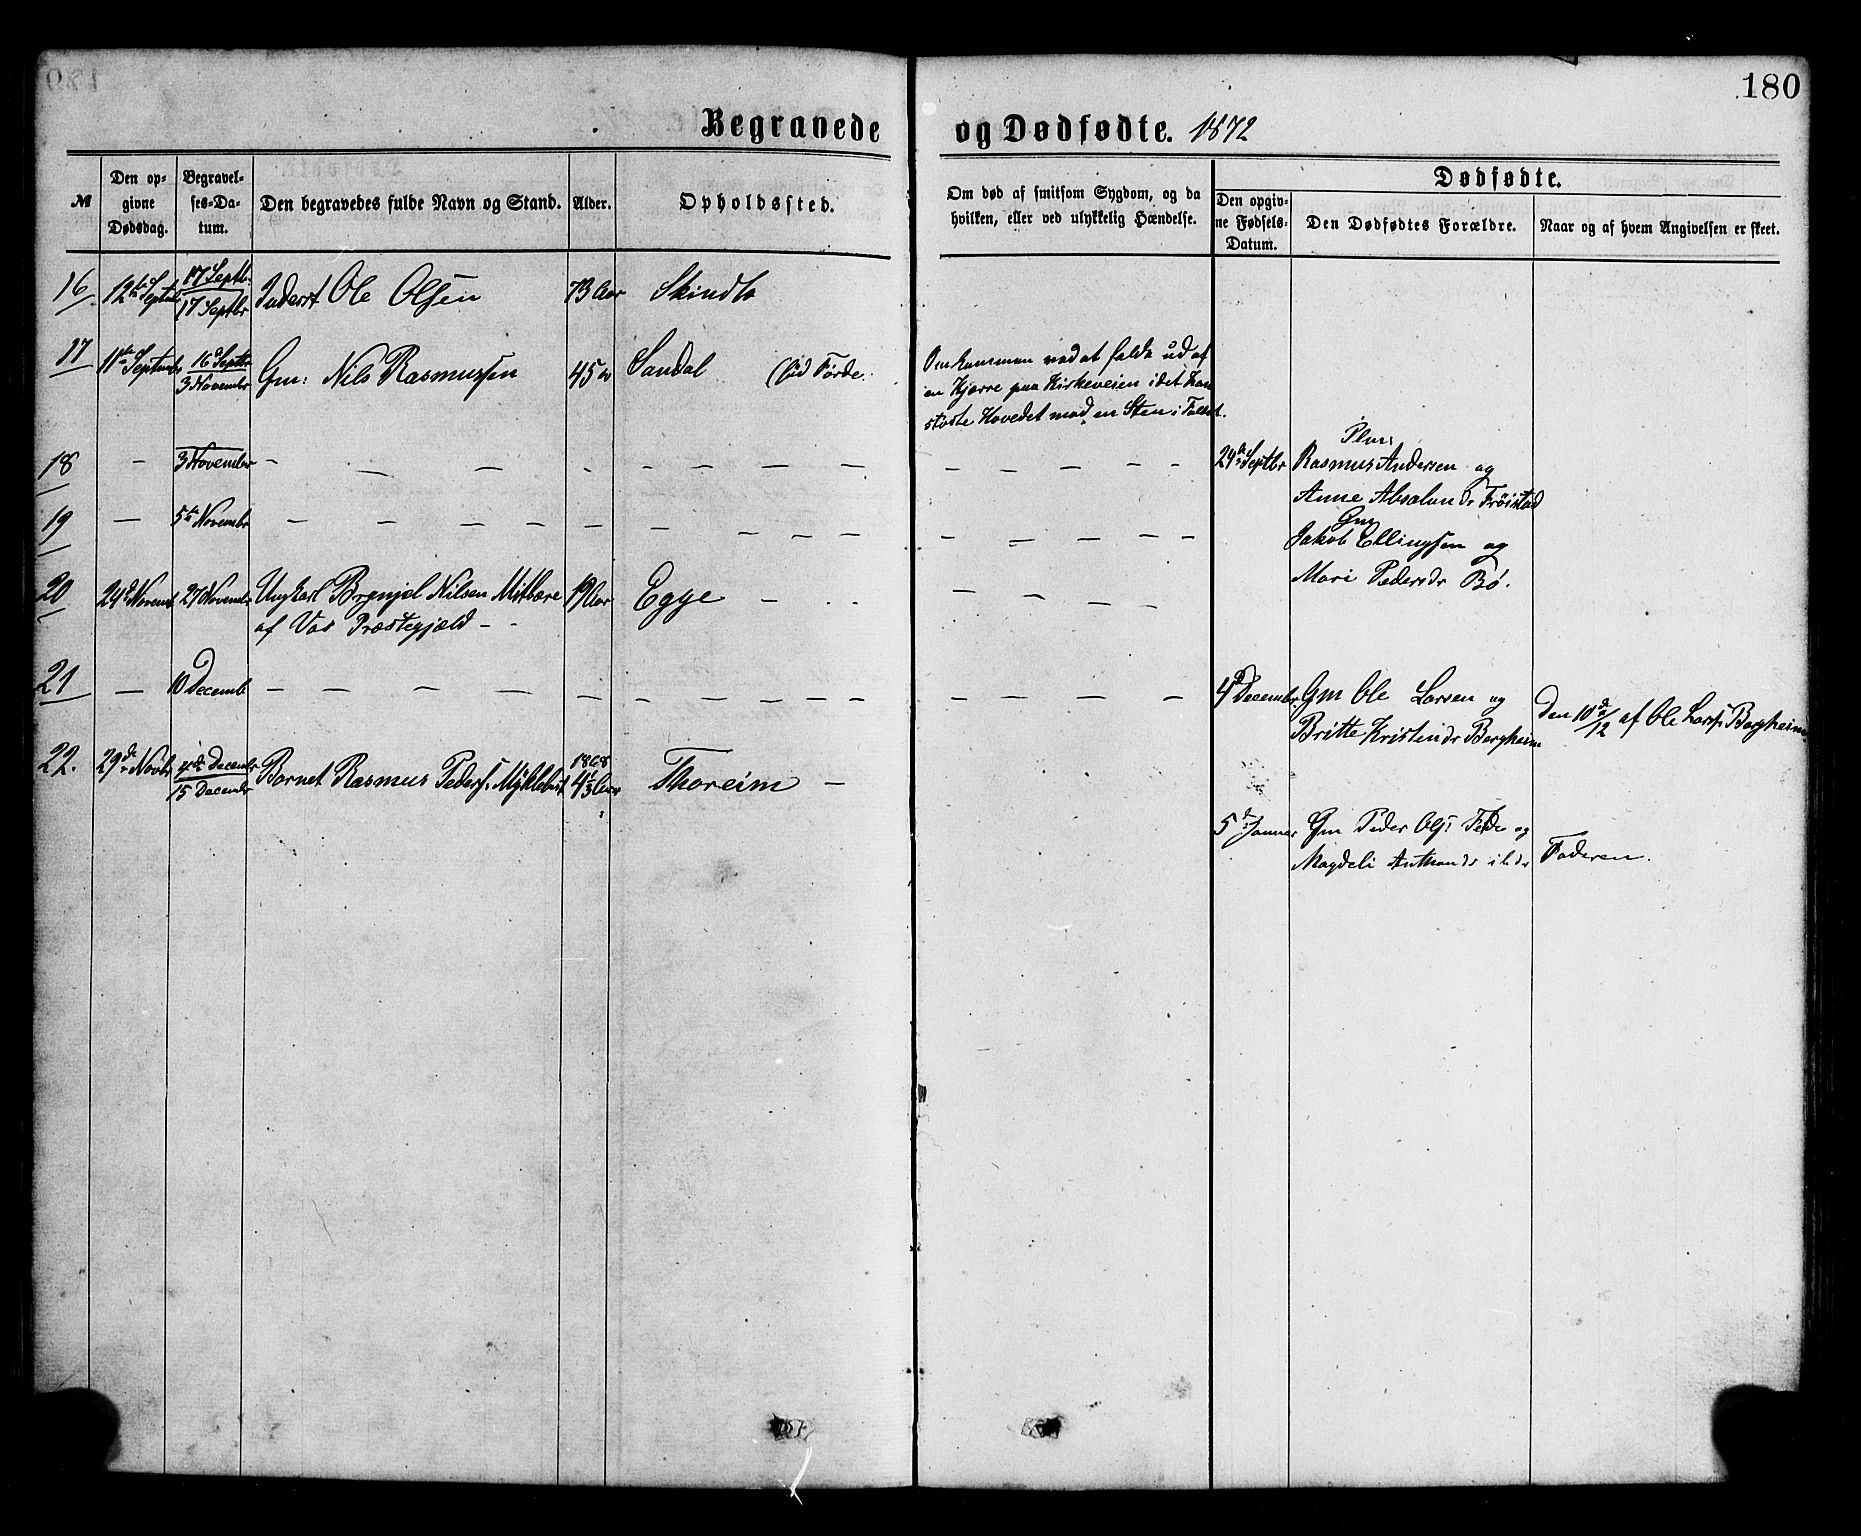 180
Begravede og Dødfødte. 1872
№
Den opgivne Dødsdag.
Begravelses-Datum.
Den begravedes fulde Navn og Stand.
Alder.
Opholdssted.
Om død af smitsom Sygdom, og da hvilken, eller ved ulykkelig Hændelse.
Dødfødte.
Den opgivne Fødsels-Datum.
Den Dødfødtes Forældre.
Naar og af hvem Angivelsen er skeet.
16 12te Septbr 17 Septbr Inderst Ole Olsen 73 Aar
17 Septbr
17 11te Septembr 16d Septbr Gm: Nils Rasmussen 45 Sandal Omkommen ved at falde ud af
3 Novembr en Kjerre paa Kirkeveien idet han
stødte Hovedet mod en Sten i Faldet.
18 – 3 Novembr – – – – – – 24d Septbr Rasmus Andersen og
Anne Absalonsdr Frøistad
19 – 5te Novembr – – – – – – Gm
Jakob Ellingsen og
Mari Pedersdr Bø.
20 24d Novemb 27 Novembr Ungkarl Brynjel Nilsen 19 Aar Egge – – –
af Vos Præstegjæld –
21 – 10 Decemb – – – – – – 4d Decembr Gm Ole Larsen og
Britte Kristensdr Bergheim Den 10d/12 af Ole Larss. Bergheim
22. 29de Novbr Decembr Barnet Rasmus Peders. Myklebust 1868 Thoreim –
15 Decembr 4 1/3 Aar
5d Januar Gm Peder Ols. og
Magdeli Faderen.